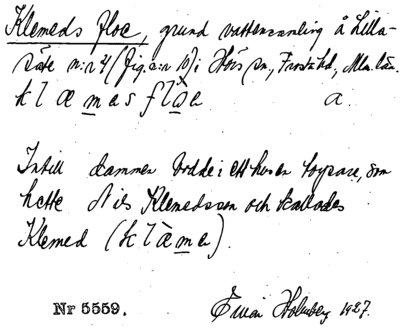 Klemeds floe, grund vattensamling å Lilla-
säte n:r 4 (fig. o:r 10) i Hörs sn, Frosta hd, Mlm. län.
klæmes flòe a.
Intill dammen bodde i ett hus en torpare, som
hette Nils Klemedsson och kallades
Klemed (klæ̀me).
Nr 5559. Einar Holmberg 1927.